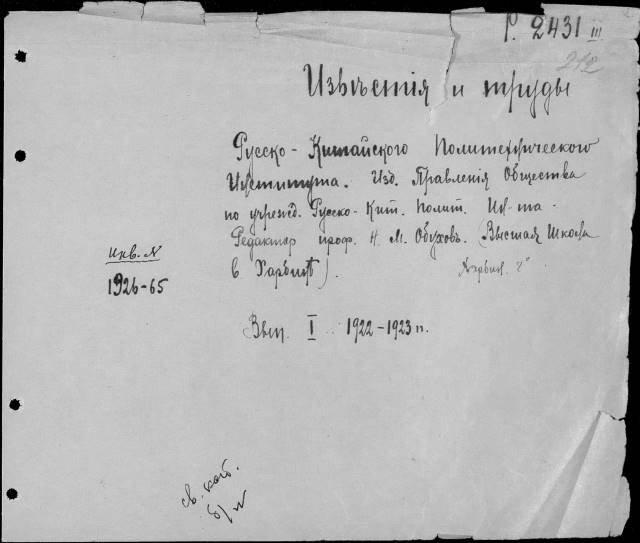 Р. 2431 III
212
Извѣстія и труды
Русско-Китайского Политехнического
Института. Изд. Правленія Общества
по учрежд. Русско-Кит. Полит. Ин-та.
Редактор проф. Н. М. Обуховъ. (Высшая Школа
в Харбинѣ).
Инв. №
1926-65
Вып. I 1922-1923 г.
св. кат.
б/н